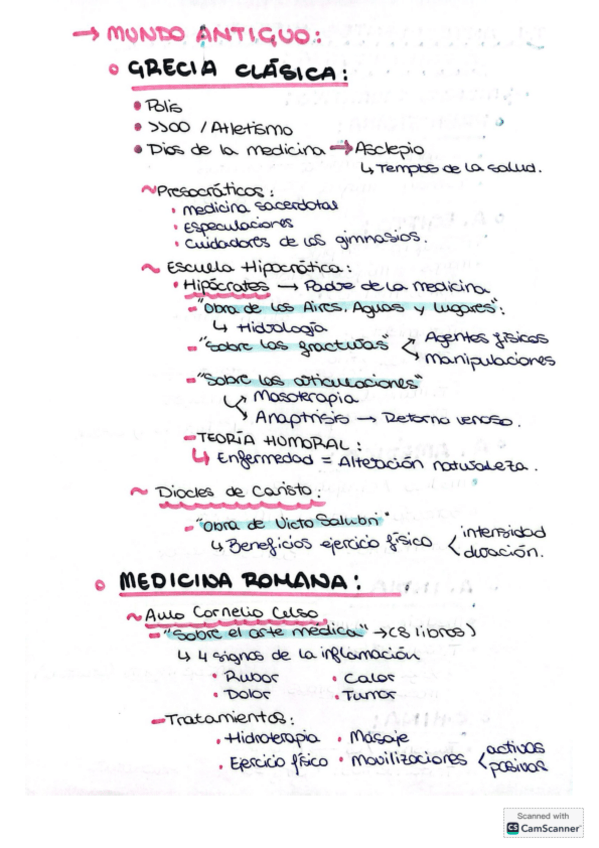 → MUNDO ANTIGUO:
○ GRECIA CLÁSICA:
• Polis
• JJOO / Atletismo
• Dios de la medicina → Asclepio
↳ Templos de la salud.
~ Presocráticos:
• medicina sacerdotal
• Especulaciones
• Cuidadores de los gimnasios.
~ Escuela Hipocrática:
• Hipócrates → Padre de la medicina
- "Obra de los Aires, Aguas y Lugares":
↳ Hidrología
- "Sobre las fracturas" < Agentes físicos
Manipulaciones
- "Sobre las articulaciones"
Masoterapia
Anaptrisis → Retorno venoso.
- TEORÍA HUMORAL:
↳ Enfermedad = Alteración naturaleza.
~ Diocles de Caristo:
- "Obra de Victo Salubri"
↳ Beneficios ejercicio físico < intensidad
duración.
○ MEDICINA ROMANA:
~ Aulo Cornelio Celso
- "Sobre el arte médica" → (8 libros)
↳ 4 signos de la inflamación
• Rubor • Calor
• Dolor • Tumor
- Tratamientos:
• Hidroterapia • Masaje
• Ejercicio físico • Movilizaciones < activas
pasivas
Scanned with
CS CamScanner